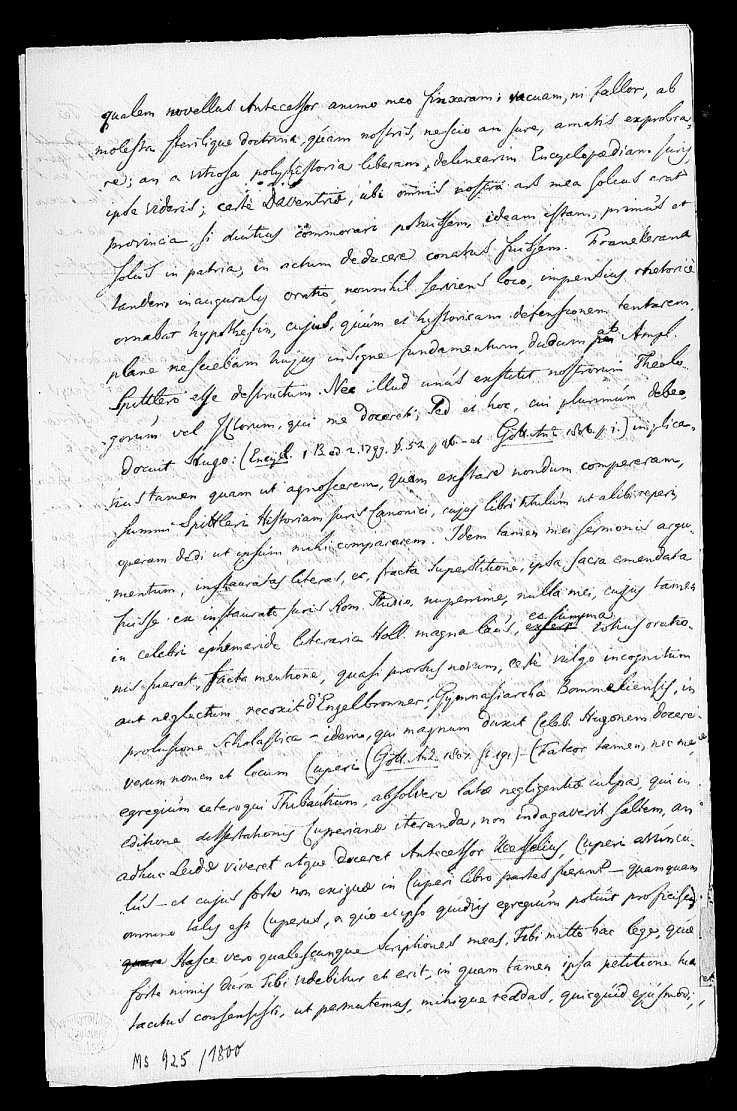 qualem novellus Antecessor animo meo finxeram; vacuam, ni fallor, ab
molesta sterilique doctrina, quam nostris, nescio an jure, amatis exprobra„
re; an a vitiosa polyhistoria liberam, delinearim Encyclopædiam Juris
ipse videris; certè Daventriæ, ubi omnis nostra ars mea solius erat
provincia, si diutius commorari potuissem, ideam istam, primus et
solus in patria, in actum deducere conatus fuissem. Franekerana
tandem inauguralis oratio, nonnihil serviens loco, impensius rhetoricè
ornabat hypothesin, cujus, quum et historicam defensionem tentarem,
plane nesciebam hujus insigne fundamentum, dudum ab Ampl.
Spittlero esse destructum. Nec illud unus exstitit nostrorum Theolo„
gorum vel JCtorum, qui me doceret; sed et hoc, cui plurimum debeo,
docuit Hugo: (Encycl. 1 B. ed 2. 1799. §. 52 ubi et Gött. Anz. 1806. p 1.) implica„
tius tamen quam ut agnoscerem, quam exstare nondum compereram,
summi Spittleri Historiam Juris Canonici, cujus libri titulum ut alibi reperi
operam dedi ut ipsum mihi compararem. Idem tamen mei sermonis argu„
mentum, instauratas literas, et, fracta superstitione, ipsa sacra emendata
fuisse ex instaurato Juris Rom. studio, nuperrime, nulla mei, cujus tamen
in celebri ephemeride literaria Holl. magna laus, et summa totius oratio„
nis fuerat, facta mentione, quasi prorsus novum, certè vulgo incognitum
aut neglectum recoxit d'Engelbronner, Gymnasiarcha Bommeliensis, in
prolusione scholastica — idem, qui magnum duxit Celeb. Hugonem docere
verum nomen et locum Cuperi (Gött. Anz. 1807. st. 191) — (Fateor tamen, nec me,
egregium ceteroqui Thibautium, absolvere latæ negligentiæ culpa, qui in
editione dissertationis Cuperianæ iteranda, non indagaverit saltem, an
adhuc Leidæ viveret atque doceret Antecessor Kesselius, Cuperi avuncu„
lus — et cujus forte non exiguæ in Cuperi libro partes fuerunt — quamquam
omnino talis est Cuperus, a quo et ipso quidvis egregium potuit proficisci)
Hasce vero qualescunque scriptiones meas, Tibi mitto hac lege, quæ
forte nimis dura Tibi videbitur et erit, in quam tamen ipsa petitione tua
tacitus consensisti, ut permutemus, mihique reddas, quicquid ejusmodi,
Ms 925 / 1800